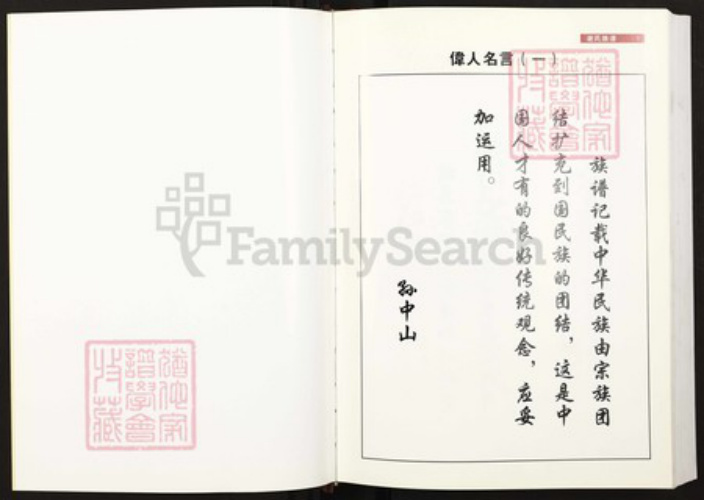 偉人名言(一)
族谱记载中华民族由宗族团
结扩充到国民族的团结，这是中
国人才有的良好传统观念，应妥
加运用。
孙中山
FamilySearch